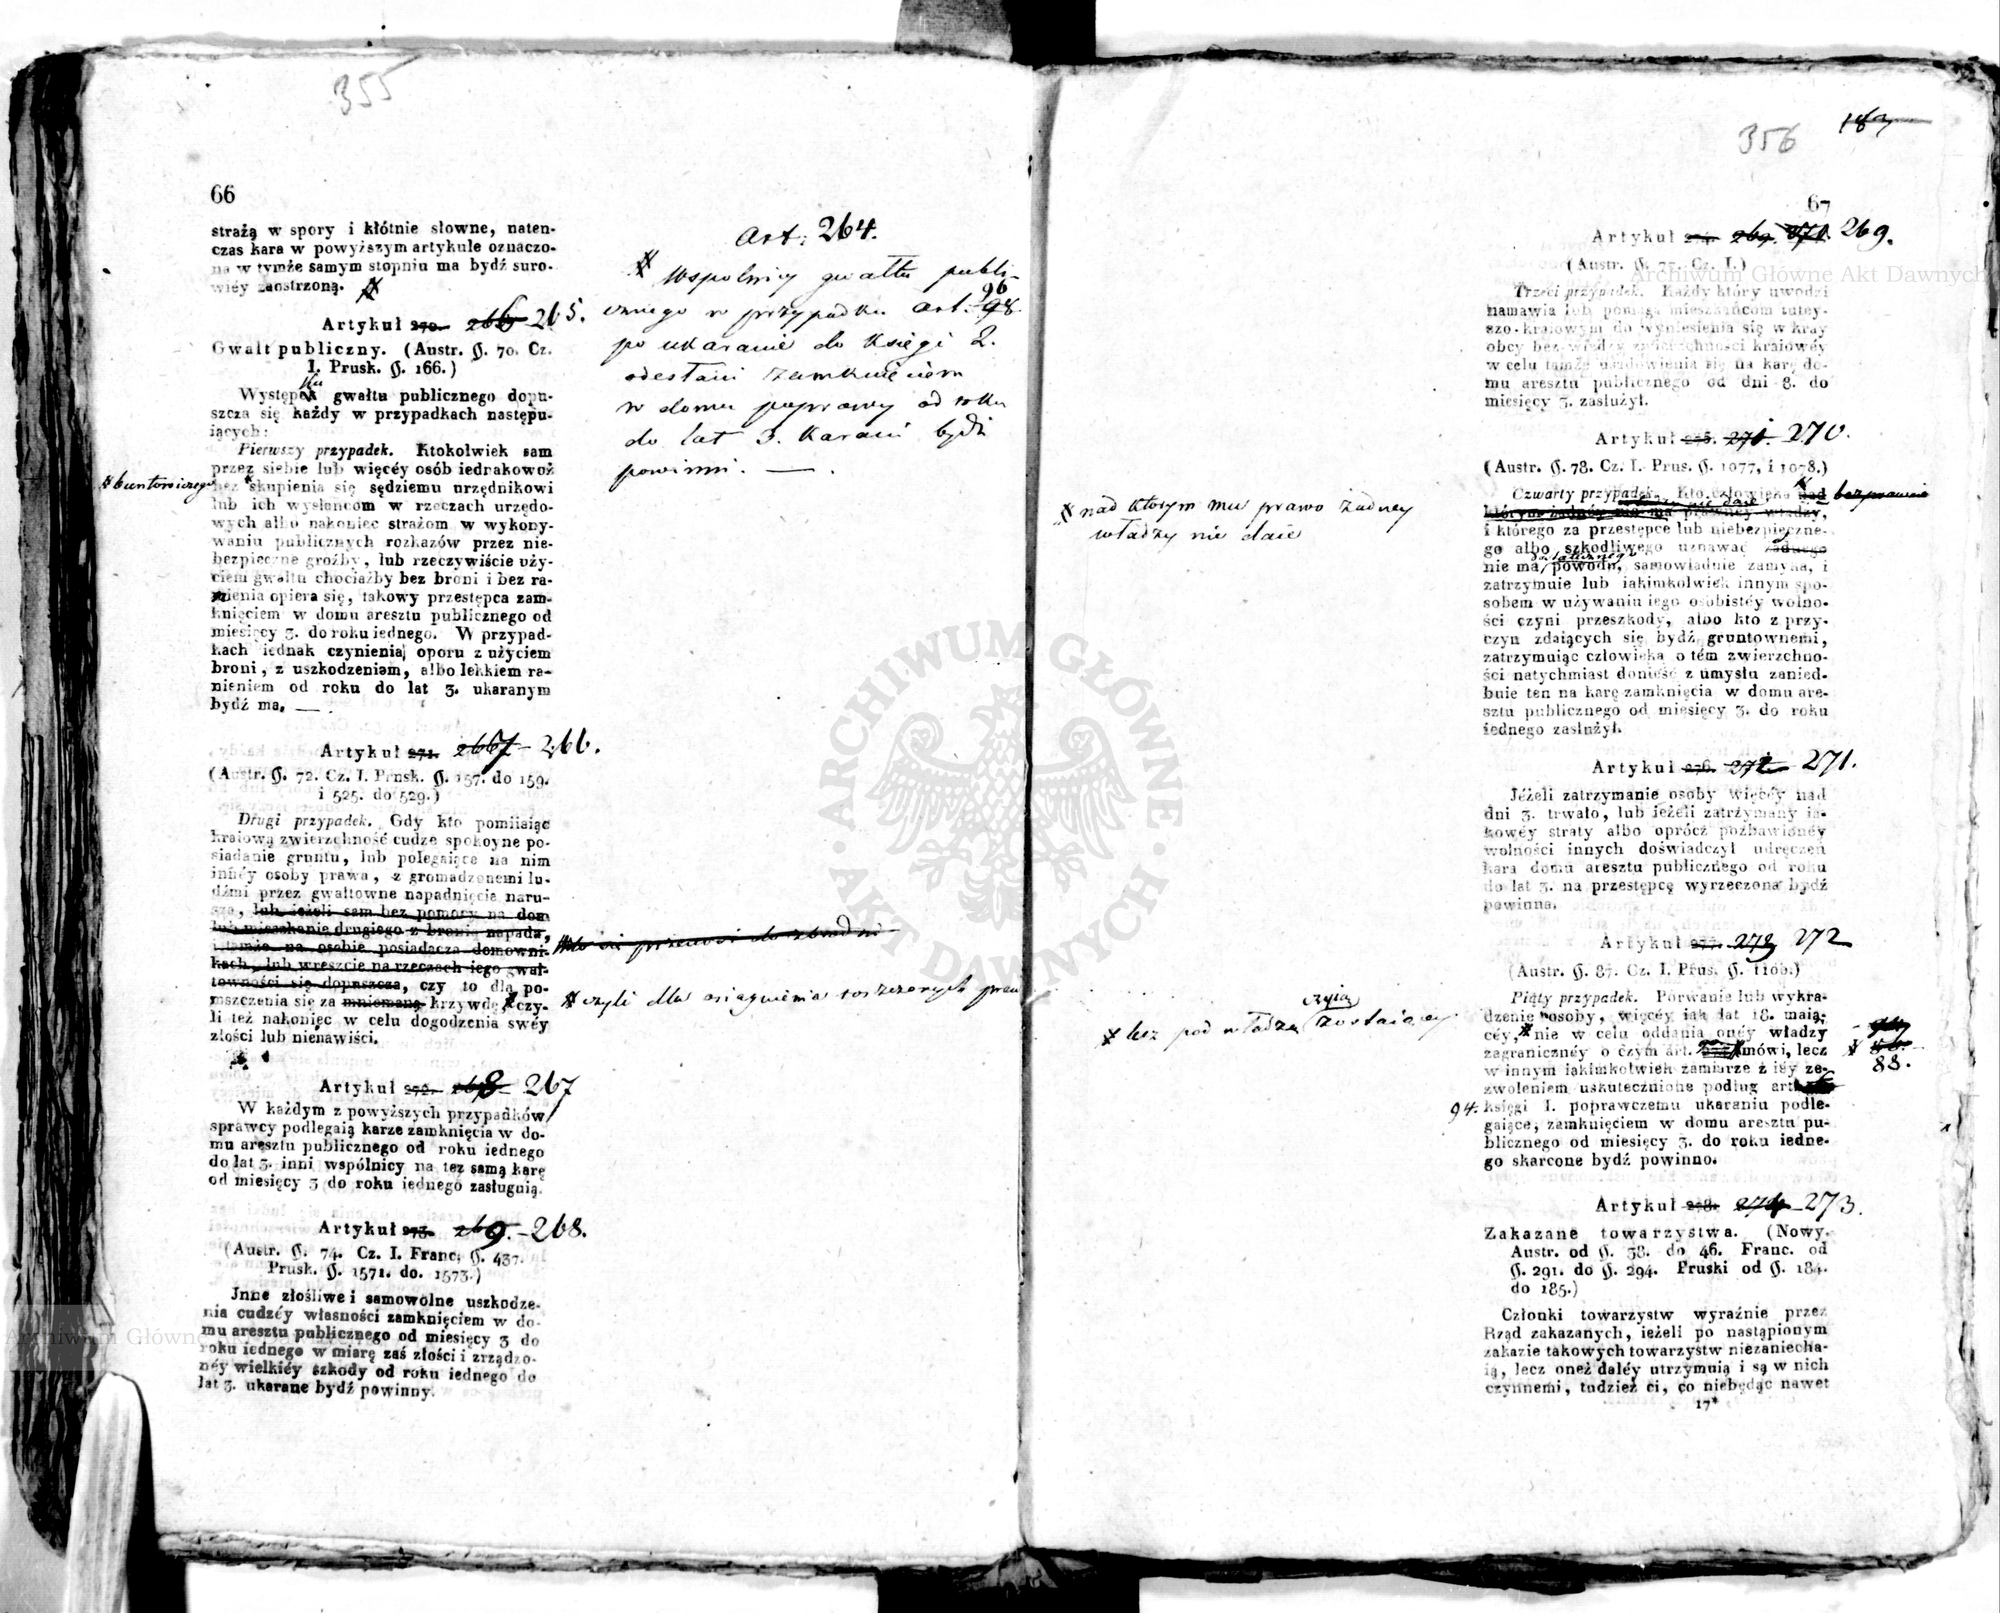 355
66
strażą w spory i kłótnie słowne, naten-
czas kara w powyższym artykule oznaczo-
na w tymże samym stopniu ma bydź suro-
wiéy zaostrzoną.
Artykuł 270. 266 265.
Gwałt publiczny. (Austr. §. 70. Cz.
I. Prusk. §. 166.)
Występek gwałtu publicznego dopu-
szcza się każdy w przypadkach następu-
iących:
Pierwszy przypadek. Ktokolwiek sam
przez siebie lub więcéy osób iednakowoż
bez skupienia się sędziemu urzędnikowi
lub ich wysłańcom w rzeczach urzędo-
wych albo nakoniec strażom w wykony-
waniu publicznych rozkazów przez nie-
bezpieczne groźby, lub rzeczywiście uży-
ciem gwałtu chociażby bez broni i bez ra-
nienia opiera się, takowy przestępca zam-
knięciem w domu aresztu publicznego od
miesięcy 3. do roku iednego. W przypad-
kach iednak czynienia oporu z użyciem
broni, z uszkodzeniam, albo lekkiem ra-
nieniem od roku do lat 3. ukaranym
bydź ma.
buntowniczego
Artykuł 271. 267 266.
(Austr. §. 72. Cz. I. Prusk. §. 157. do 159.
i 525. do 529.)
Drugi przypadek. Gdy kto pomiiaiąc
kraiową zwierzchność cudze spokoyne po-
siadanie gruntu, lub polegaiące na nim
innéy osoby prawa, z gromadzonemi lu-
dźmi przez gwałtowne napadnięcie naru-
sza, lub ieżeli sam bez pomocy na dom
lub mieszkanie drugiego z bronią napada,
i tamże na osobie posiadacza domowni-
kach, lub wreszcie na rzeczach iego gwał-
towności się dopuszcza, czy to dla po-
mszczenia się za mniemaną krzywdę, czy-
li też nakoniec w celu dogodzenia swéy
złości lub nienawiści.
Artykuł 272. 268 267
W każdym z powyższych przypadków
sprawcy podlegaią karze zamknięcia w do-
mu aresztu publicznego od roku iednego
do lat 3. inni wspólnicy na tez samą karę
od miesięcy 3 do roku iednego zasługuią.
Artykuł 273. 269. 268.
(Austr. §. 74. Cz. I. Franc. §. 437.
Prusk. §. 1571. do. 1573.)
Jnne złośliwe i samowolne uszkodze-
nia cudzéy własności zamknięciem w do-
mu aresztu publicznego od miesięcy 3 do
roku iednego w miarę zaś złości i zrządzo-
néy wielkiéy szkody od roku iednego do
lat 3. ukarane bydź powinny.
Art. 264.
Wspolnicy gwałtu publi-
cznego w przypadku art. 98 96
po ukaranie do Księgi 2.
odesłani zamknięciem
w domu poprawy od roku
do lat 3. karani bydź
powinni.
to się przenosi do zbrodni
czyli dla osiągnienia roszczonych praw
356
187
67
Artykuł 274. 269. 270. 269.
(Austr. §. 75. Cz. I.)
Trzeci przypadek. Każdy który uwodzi
namawia lub pomaga mieszkańcom tutey-
szo-kraiowym do wyniesienia się w kray
obcy bez wiedzy zwierzchności kraiowéy
w celu tamże usadowienia się na karę do-
mu aresztu publicznego od dni 8. do
miesięcy 3. zasłużył.
Artykuł 275. 271. 270.
(Austr. §. 78. Cz. I. Prus. §. 1077, i 1078.)
Czwarty przypadek. Kto człowieka nad bezprawnie
którym żadnéy nie ma prawnéy władzy,
i którego za przestępce lub niebezpieczne-
go albo szkodliwego uznawać żadnego
nie ma dostatecznego powodu, samowładnie zamyka, i
zatrzymuie lub iakimkolwiek innym spo-
sobem w używaniu iego osobistéy wolno-
ści czyni przeszkody, albo kto z przy-
czyn zdaiących się bydź gruntownemi,
zatrzymuiąc człowieka o tém zwierzchno-
ści natychmiast donieść z umysłu zanied-
buie ten na karę zamknięcia w domu are-
sztu publicznego od miesięcy 3. do roku
iednego zasłużył.
nad którym mu prawo żadney
władzy nie daie
Artykuł 276. 272 271.
Jéżeli zatrzymanie osoby więcéy nad
dni 3. trwało, lub ieżeli zatrzymany ia-
kowéy straty albo oprócz pozbawionéy
wolności innych doświadczył udręczeń
kara domu aresztu publicznego od roku
do lat 3. na przestępcę wyrzeczona bydź
powinna.
Artykuł 277. 273 272
(Austr. §. 87. Cz. I. Prus. §. 1100.)
Piąty przypadek. Porwanie lub wykra-
dzenie osoby, więcéy iak lat 18. maią-
céy, nie w celu oddania onéy władzy
zagranicznéy o czym art. mówi, lecz
w innym iakimkolwiek zamiarze z iéy ze-
zwoleniem uskutecznione podług art.
94. księgi I. poprawczemu ukaraniu podle-
gaiące, zamknięciem w domu aresztu pu-
blicznego od miesięcy 3. do roku iedne-
go skarcone bydź powinno.
lecz pod władzą czyią zostaiącey
88.
Artykuł 278. 274 273.
Zakazane towarzystwa. (Nowy.
Austr. od §. 38. do 46. Franc. od
§. 291. do §. 294. Pruski od §. 184.
do 185.)
Członki towarzystw wyraźnie przez
Rząd zakazanych, ieżeli po nastąpionym
zakazie takowych towarzystw niezaniecha-
ią, lecz oneż daléy utrzymuią i są w nich
czynnemi, tudzież ci, co niebędąc nawet
17*
Archiwum Główne Akt Dawnych
ARCHIWUM GŁÓWNE AKT DAWNYCH
Archiwum Główne Akt Dawnych